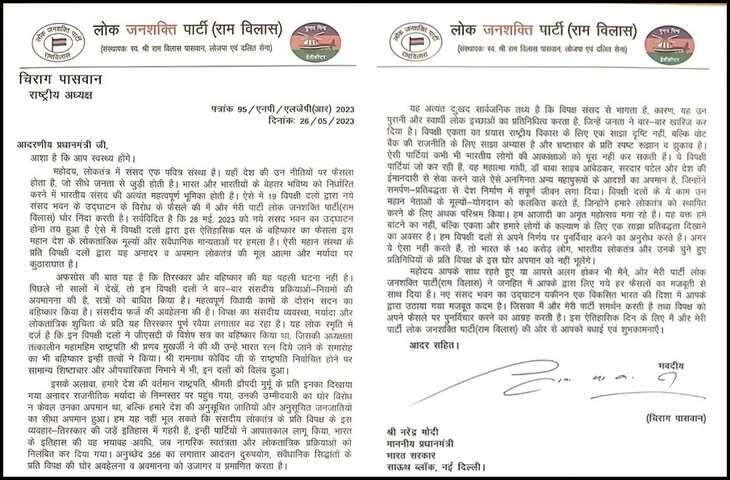 लोक जनशक्ति पार्टी (राम विलास)
(संस्थापकः स्व. श्री राम विलास पासवान, लोजपा एवं दलित सेना)
चिराग पासवान
राष्ट्रीय अध्यक्ष
पत्रांक 95/एनपी/एलजेपी(आर) 2023
दिनांक: 26/05/2023
आदरणीय प्रधानमंत्री जी,
आशा है कि आप स्वस्थ्य होंगे।
महोदय, लोकतंत्र में संसद एक पवित्र संस्था है। यहाँ देश की उन नीतियों पर फैसला
होता है, जो सीधे जनता से जुड़ी होती है। भारत और भारतीयों के बेहतर भविष्य को निर्धारित
करने में भारतीय संसद की अत्यंत महत्वपूर्ण भूमिका होती है। ऐसे में 19 विपक्षी दलों द्वारा नये
संसद भवन के उद्घाटन के विरोध के फैसले की मैं और मेरी पार्टी लोक जनशक्ति पार्टी(राम
विलास) घोर निंदा करती है। सर्वविदित है कि 28 मई, 2023 को नये संसद भवन का उद्घाटन
होना तय हुआ है। ऐसे में विपक्षी दलों द्वारा इस ऐतिहासिक पल के बहिष्कार का फैसला इस
महान देश के लोकतांत्रिक मूल्यों और संवैधानिक मान्यताओं पर हमला है। ऐसी महान संस्था के
प्रति विपक्षी दलों द्वारा यह अनादर व अपमान लोकतंत्र की मूल आत्मा और मर्यादा पर
कुठाराघात है।
अफसोस की बात यह है कि तिरस्कार और बहिष्कार की यह पहली घटना नहीं है।
पिछले नौ सालों में देखें, तो इन विपक्षी दलों ने बार-बार संसदीय प्रक्रियाओं-नियमों की
अवमानना की है, सत्रों को बाधित किया है। महत्वपूर्ण विधायी कामों के दौरान सदन का
बहिष्कार किया है। संसदीय फर्ज की अवहेलना की है। विपक्ष का संसदीय व्यवस्था, मर्यादा और
लोकतांत्रिक शुचिता के प्रति यह तिरस्कार पूर्ण रवैया लगातार बढ रहा है। यह लोक स्मृति में
दर्ज है कि इन विपक्षी दलों ने जीएसटी के विशेष सत्र का बहिष्कार किया था, जिसकी अध्यक्षता
तत्कालीन महामहिम राष्ट्रपति श्री प्रणव मुखर्जी ने की थी उन्हें भारत रत्न दिये जाने के समारोह
का भी बहिष्कार इन्हीं तत्वों ने किया। श्री रामनाथ कोविंद जी के राष्ट्रपति निर्वाचित होने पर
सामान्य शिष्टाचार और औपचारिकता निभाने में भी, इन दलों को विलंब हुआ।
इसके अलावा, हमारे देश की वर्तमान राष्ट्रपति, श्रीमती द्रौपदी मुर्मू के प्रति इनका दिखाया
गया अनादर राजनीतिक मर्यादा के निम्नस्तर पर पहुंच गया, उनकी उम्मीदवारी का घोर विरोध
न केवल उनका अपमान था, बल्कि हमारे देश की अनुसूचित जातियों और अनुसूचित जनजातियों
का सीधा अपमान हुआ। हम यह नहीं भूल सकते कि संसदीय लोकतंत्र के प्रति विपक्ष के इस
व्यवहार-तिरस्कार की जड़ें इतिहास में गहरी हैं, इन्हीं पार्टियों ने आपातकाल लागू किया, भारत
के इतिहास की वह भयावह अवधि, जब नागरिक स्वतंत्रता और लोकतांत्रिक प्रक्रियाओं को
निलंबित कर दिया गया। अनुच्छेद 356 का लगातार आदतन दुरुपयोग, संवैधानिक सिद्धांतों के
प्रति विपक्ष की घोर अवहेलना व अवमानना को उजागर व प्रमाणित करता है।
लोक जनशक्ति पार्टी (राम विलास)
(संस्थापकः स्व. श्री राम विलास पासवान, लोजपा एवं दलित सेना)
यह अत्यंत दुःखद सार्वजनिक तथ्य है कि विपक्ष संसद से भागता है, कारण, यह उन
पुरानी और स्वार्थी लोक इच्छाओं का प्रतिनिधित्व करता है, जिन्हें जनता ने बार-बार खारिज कर
दिया है। विपक्षी एकता का प्रयास राष्ट्रीय विकास के लिए एक साझा दृष्टि नहीं, बल्कि वोट
बैंक की राजनीति के लिए साझा अभ्यास है और भ्रष्टाचार के प्रति स्पष्ट रूझान व झुकाव है।
ऐसी पार्टियां कभी भी भारतीय लोगों की आकांक्षाओं को पूरा नहीं कर सकती हैं। ये विपक्षी
पार्टियां जो कर रही हैं, वह महात्मा गांधी, डॉ बाबा साहब आंबेडकर, सरदार पटेल और देश की
ईमानदारी से सेवा करने वाले ऐसे अनगिनत अन्य महापुरूषों के आदर्शों का अपमान है, जिन्होंने
समर्पण-प्रतिबद्धता से देश निर्माण में संपूर्ण जीवन लगा दिया। विपक्षी दलों के ये काम उन
महान नेताओं के मूल्यों-योगदान को कलंकित करते हैं, जिन्होंने हमारे लोकतंत्र को स्थापित
करने के लिए अथक परिश्रम किया। हम आजादी का अमृत महोत्सव मना रहे हैं। यह वक्त हमें
बांटने का नहीं, बल्कि एकता और हमारे लोगों के कल्याण के लिए एक साझा प्रतिबद्धता दिखाने
का अवसर है। हम विपक्षी दलों से अपने निर्णय पर पुनर्विचार करने का अनुरोध करते हैं। अगर
वे ऐसा नहीं करते हैं, तो भारत के 140 करोड़ लोग, भारतीय लोकतंत्र और उनके चुने हुए
प्रतिनिधियों के प्रति विपक्ष के इस घोर अपमान को नहीं भूलेंगे।
महोदय आपके साथ रहते हुए या आपसे अलग होकर भी मैंने, और मेरी पार्टी लोक
जनशक्ति पार्टी(राम विलास) ने जनहित में आपके द्वारा लिए गये हर फैसलों का मजबूती से
साथ दिया है। नए संसद भवन का उद्घाटन यकीनन एक विकसित भारत की दिशा में आपके
द्वारा उठाया गया मजबूत कदम है। जिसका मैं और मेरी पार्टी समर्थन करती है तथा विपक्ष को
अपने फैसले पर पुनर्विचार करने का आग्रह करती है। इस ऐतिहासिक दिन के लिए मैं और मेरी
पार्टी लोक जनशक्ति पार्टी(राम विलास) की ओर से आपको बधाई एवं शुभकामनाएँ।
आदर सहित।
भवदीय
(चिराग पासवान)
श्री नरेंद्र मोदी
माननीय प्रधानमंत्री
भारत सरकार
साऊथ ब्लॉक, नई दिल्ली।